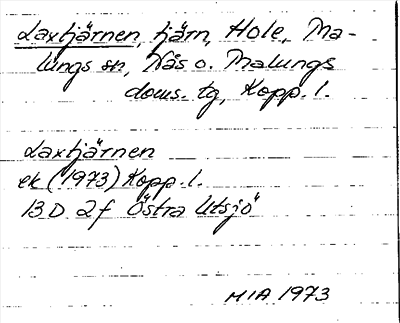 Laxtjärnen, tjärn, Hole, Ma-
lungs sn, Nås o. Malungs
doms. tg, Kopp. l.
Laxtjärnen
ek (1973) Kopp. l.
13D 2f Östra Utsjö
MIA 1973